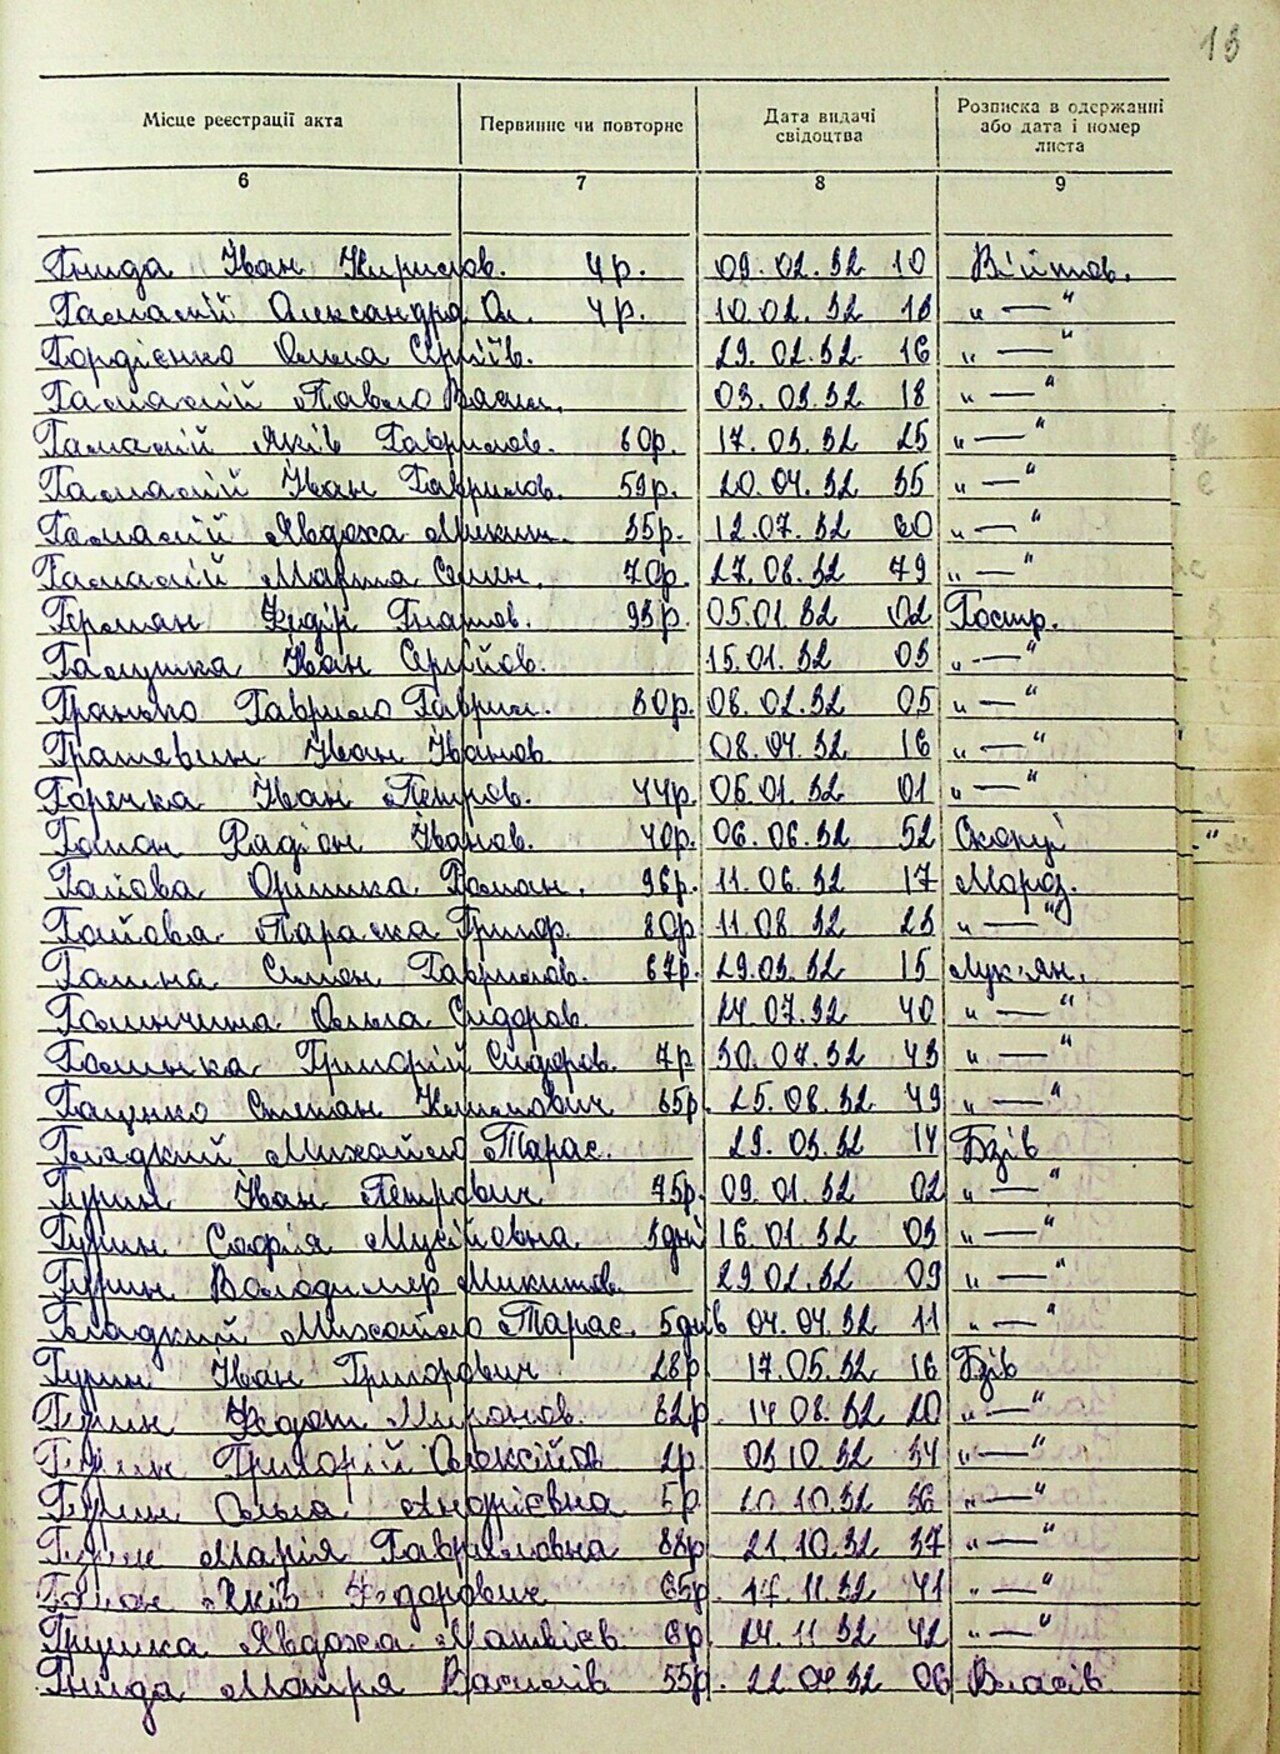 13
Місце реєстрації акта Первинне чи повторне Дата видачі свідоцтва Розписка в одержанні або дата і номер листа
6 7 8 9
Гнида Іван Кирилов. 4р. 09.02.32 10 Війтов.
Гамалій Олександра Ол. 4р. 10.02.32 13 „—“
Гордієнко Ольга Сергіїв. 29.02.32 16 „—“
Гамалій Павло Васил. 03.03.32 18 „—“
Гамалій Яків Гаврилов. 60р. 17.03.32 25 „—“
Гамалій Іван Гаврилов. 59р. 20.04.32 35 „—“
Гамалій Явдоха Микит. 35р. 12.07.32 60 „—“
Гамалій Марта Семен. 70р. 27.08.32 79 „—“
Герман Федір Гнатов. 93р. 05.01.32 02 Гостр.
Галушка Іван Сергійов. 15.01.32 03 „—“
Гранько Гаврило Гаврил. 30р. 08.02.32 05 „—“
Іван Іванов 08.04.32 16 „—“
Горечка Іван Петров. 44р. 06.01.32 01 „—“
Гапон Радіон Іванов. 40р. 06.06.32 52 Скопці
Гайова Оришка Роман. 96р. 11.06.32 17 Мороз.
Гайова Параска Григор. 80р. 11.08.32 23 „—“
Семон Гаврилов. 67р. 29.03.32 15 Лук'ян.
Ольга Сидоров. 24.07.32 40 „—“
Григорій Сидоров. 7р 30.07.32 43 „—“
Гаценко Степан Климович 65р. 25.08.32 49 „—“
Гладкий Михайло Тарас. 29.03.32 14 Бзів
Гурин Іван Петрович 75р. 09.01.32 02 „—“
Гурин Софія Мусійовна 3дні 16.01.32 03 „—“
Гурин Володимер Микитов. 29.02.32 09 „—“
Гладкий Михайло Тарас. 5днів 04.04.32 11 „—“
Гурин Іван Григорович 28р. 17.05.32 16 Бзів
Гурин Федот Миронов. 62р. 14 08.32 20 „—“
Гурин Григорій Олексійов 2р. 03 10.32 34 „—“
Гурин Ольга Андрієвна 5р 20.10.32 36 „—“
Гурин Марія Гавриловна 88р 21.10.32 37 „—“
Гапон Яків Федорович 65р. 17.11.32 41 „—“
Грушка Явдоха Матвієв. 6р. 24.11.32 42 „—“
Гнида Мотря Василів 55р. 22.04 32 06 Власів